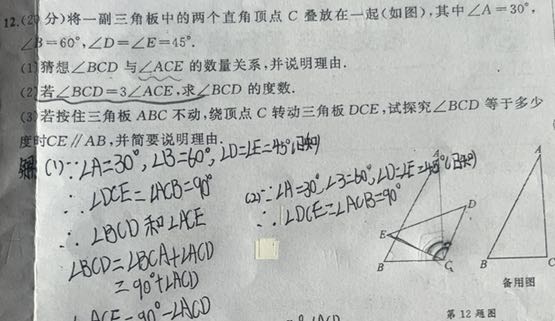 12.(20分)将一副三角板中的两个直角顶点 C 叠放在一起(如图),其中∠A=30°,
∠B=60°,∠D=∠E=45°.
(1)猜想∠BCD 与∠ACE 的数量关系,并说明理由.
(2)若∠BCD=3∠ACE,求∠BCD 的度数.
(3)若按住三角板 ABC 不动,绕顶点 C 转动三角板 DCE,试探究∠BCD 等于多少
度时CE∥AB,并简要说明理由.
解 (1)∵∠A=30°,∠B=60°,∠D=∠E=45°(已知)
∴∠DCE=∠ACB=90°
∴∠BCD和∠ACE
∠BCD=∠BCA+∠ACD
=90°+∠ACD
∠ACE=90°-∠ACD
(2)∵∠A=30°,∠B=60°,∠D=∠E=45°(已知)
∴∠DCE=∠ACB=90°
A
D
E
B
C
A
B
C
备用图
第 12 题图